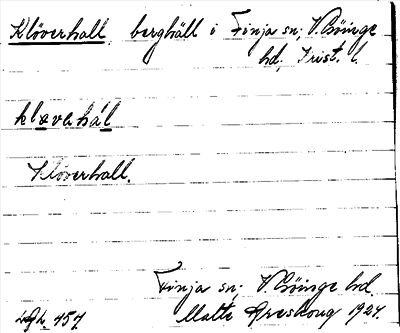 Klöverhall, berghäll i Finja sn; V. Göinge
hd; Krist. l.
kløvahál
Klöverhall.
Finja sn; V. Göinge hd.
457 Matts Areskoug 1924.